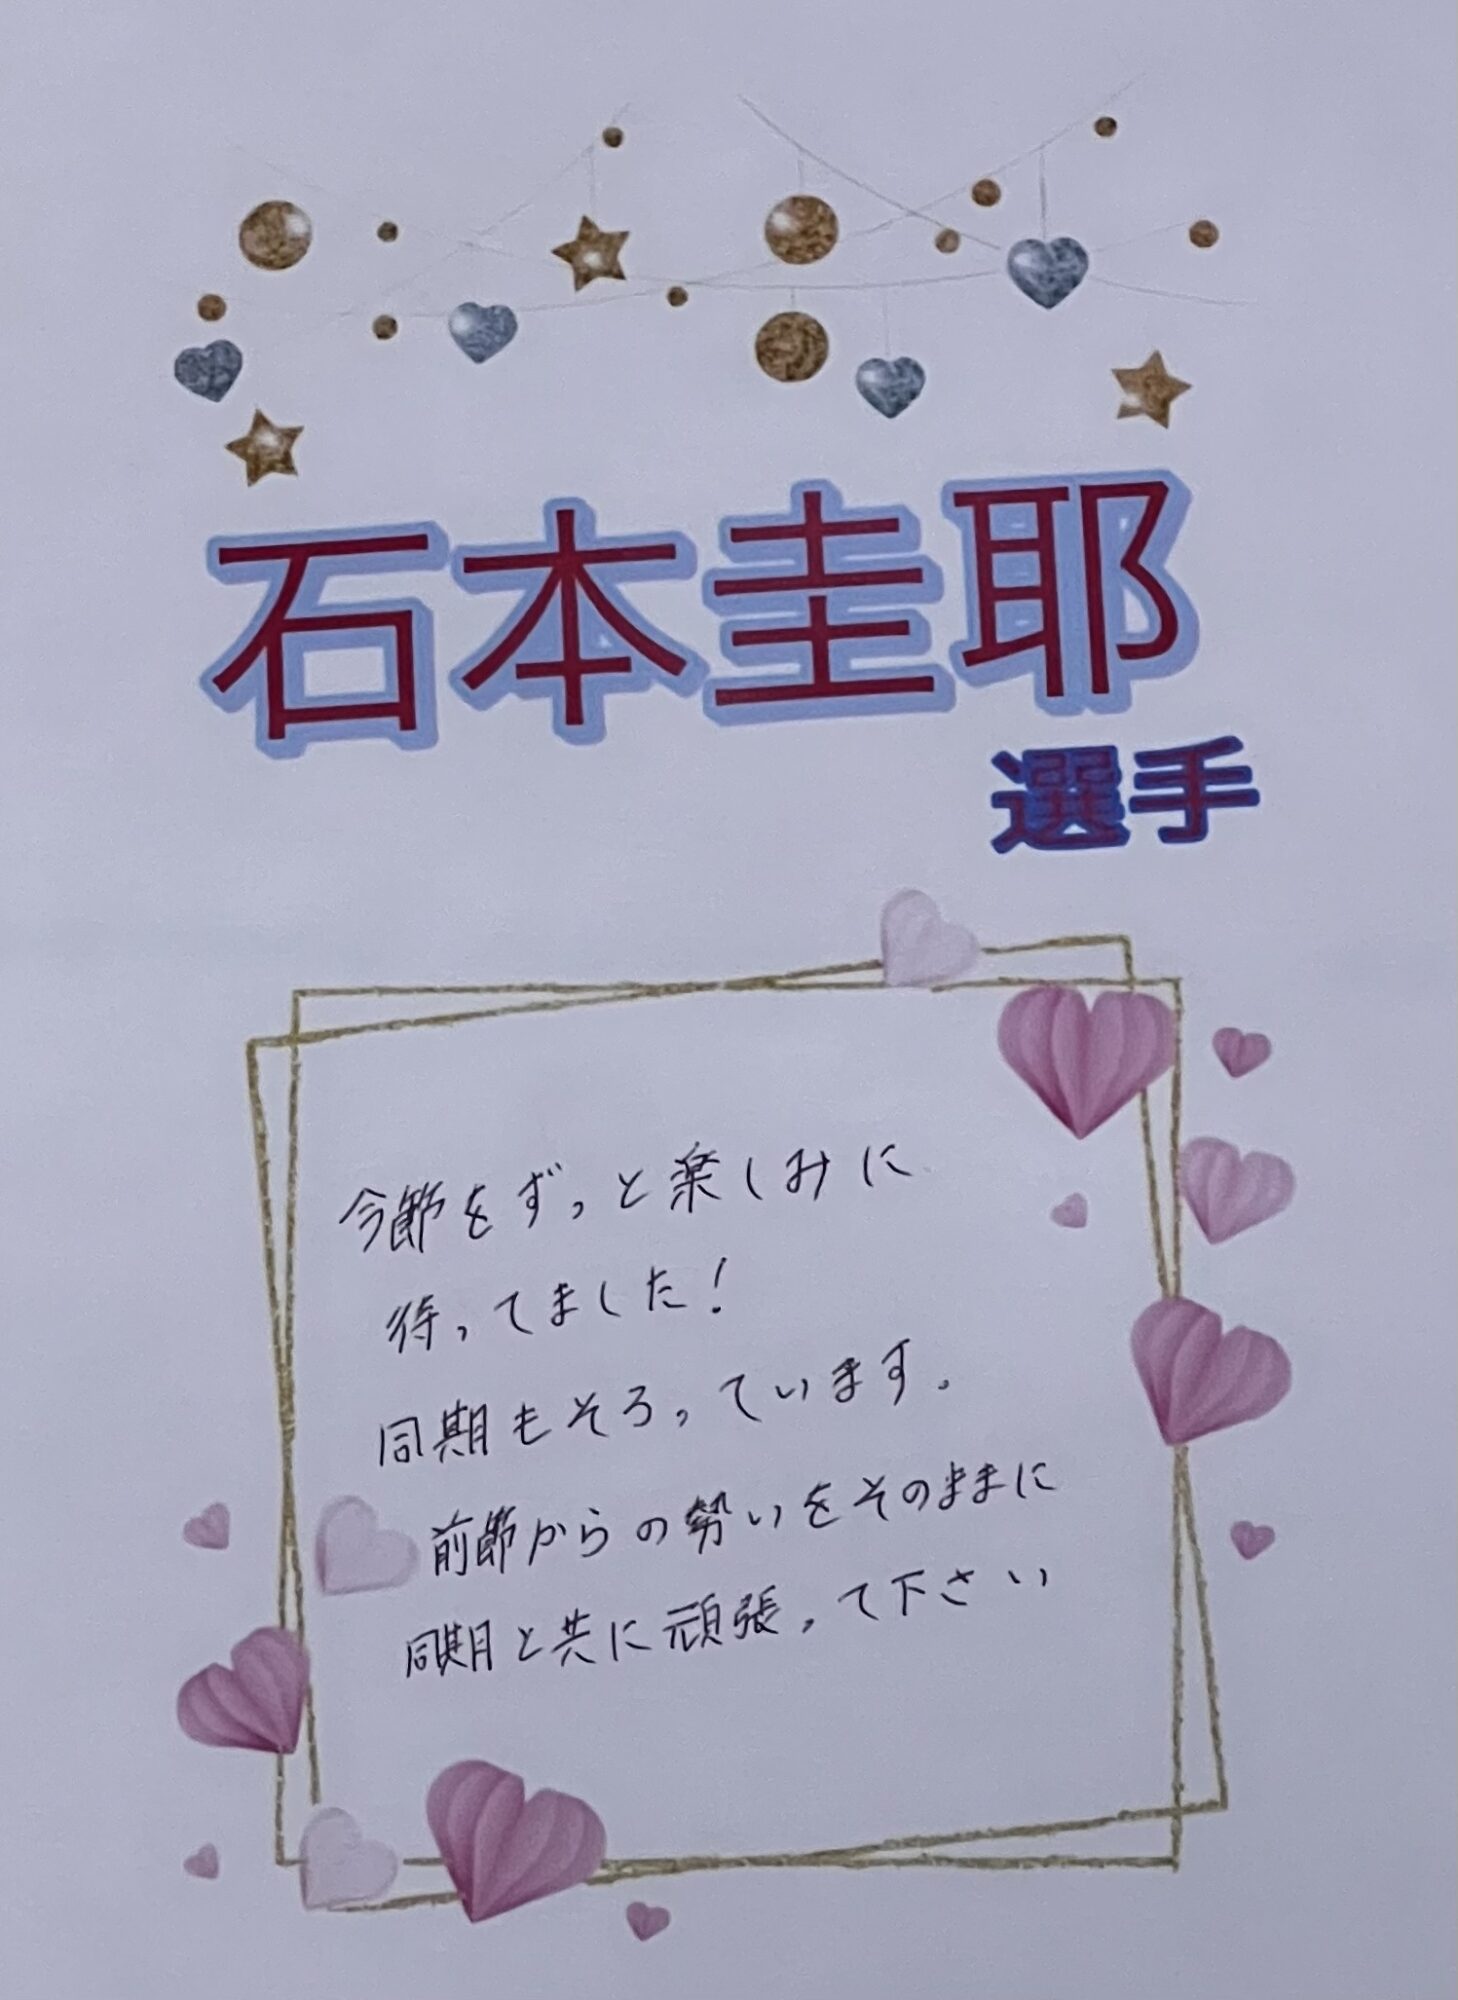 石本圭耶
選手
今節をずっと楽しみに
待ってました！
同期もそろっています。
前節からの勢いをそのままに
同期と共に頑張って下さい